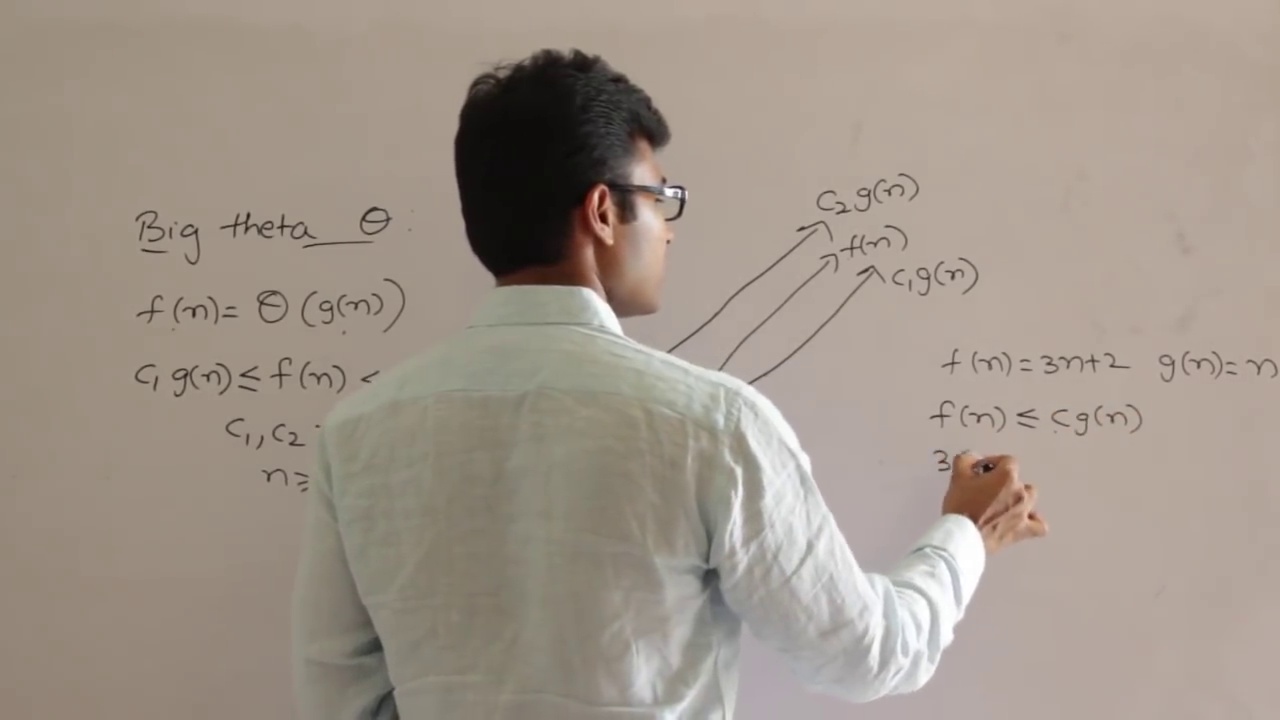 Big theta Θ :
f(n)= Θ (g(n))
c₁ g(n) ≤ f(n) ≤
c₁, c₂
n ≥
c₂ g(n)
f(n)
c₁ g(n)
f(n) = 3n+2 g(n) = n
f(n) ≤ c g(n)
3